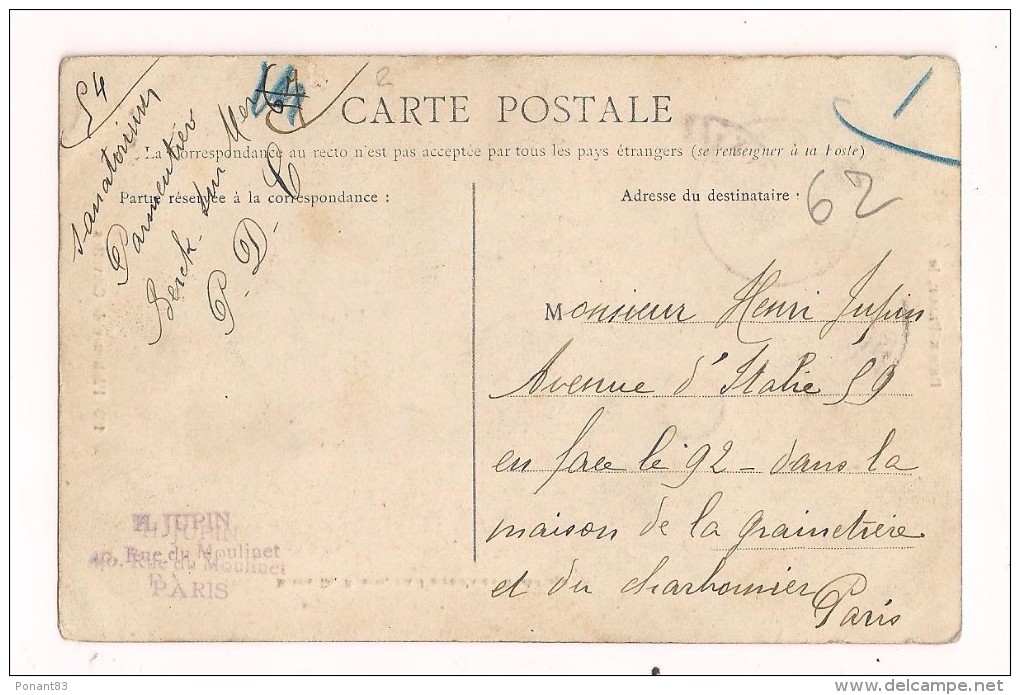 54
Sanatorium
Parmentier
Berck-sur Mer
P. D. C
CARTE POSTALE
La correspondance au recto n'est pas acceptée par tous les pays étrangers (se renseigner à la Poste)
Partie réservée à la correspondance :
Adresse du destinataire :
62
Monsieur Henri Jupin
Avenue d'Italie 59
en face le 92 - dans la
maison de la grainetière
et du charbonnier
Paris
H. JUPIN
40, Rue du Moulinet
PARIS
Ponant83
http://www.delcampe.net